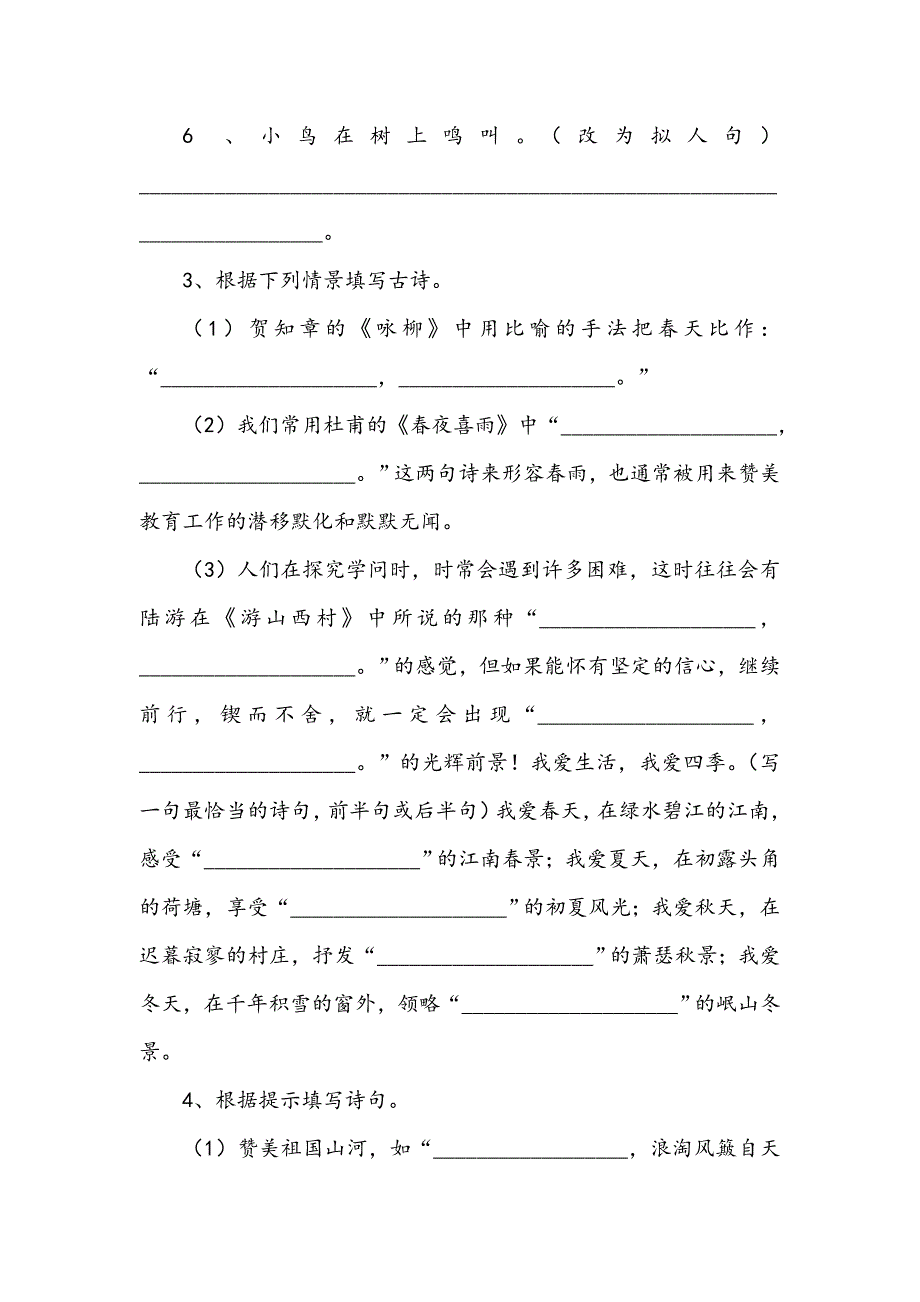 6、小鸟在树上鸣叫。（改为拟人句）
____________________________________________________________
_________________。
3、根据下列情景填写古诗。
（1）贺知章的《咏柳》中用比喻的手法把春天比作：
“____________________，____________________。”
（2）我们常用杜甫的《春夜喜雨》中“____________________，
____________________。”这两句诗来形容春雨，也通常被用来赞美
教育工作的潜移默化和默默无闻。
（3）人们在探究学问时，时常会遇到许多困难，这时往往会有
陆游在《游山西村》中所说的那种“____________________，
____________________。”的感觉，但如果能怀有坚定的信心，继续
前行，锲而不舍，就一定会出现“____________________，
____________________。”的光辉前景！我爱生活，我爱四季。（写
一句最恰当的诗句，前半句或后半句）我爱春天，在绿水碧江的江南，
感受“____________________”的江南春景；我爱夏天，在初露头角
的荷塘，享受“____________________”的初夏风光；我爱秋天，在
迟暮寂寥的村庄，抒发“____________________”的萧瑟秋景；我爱
冬天，在千年积雪的窗外，领略“____________________”的岷山冬
景。
4、根据提示填写诗句。
（1）赞美祖国山河，如“__________________，浪淘风簸自天